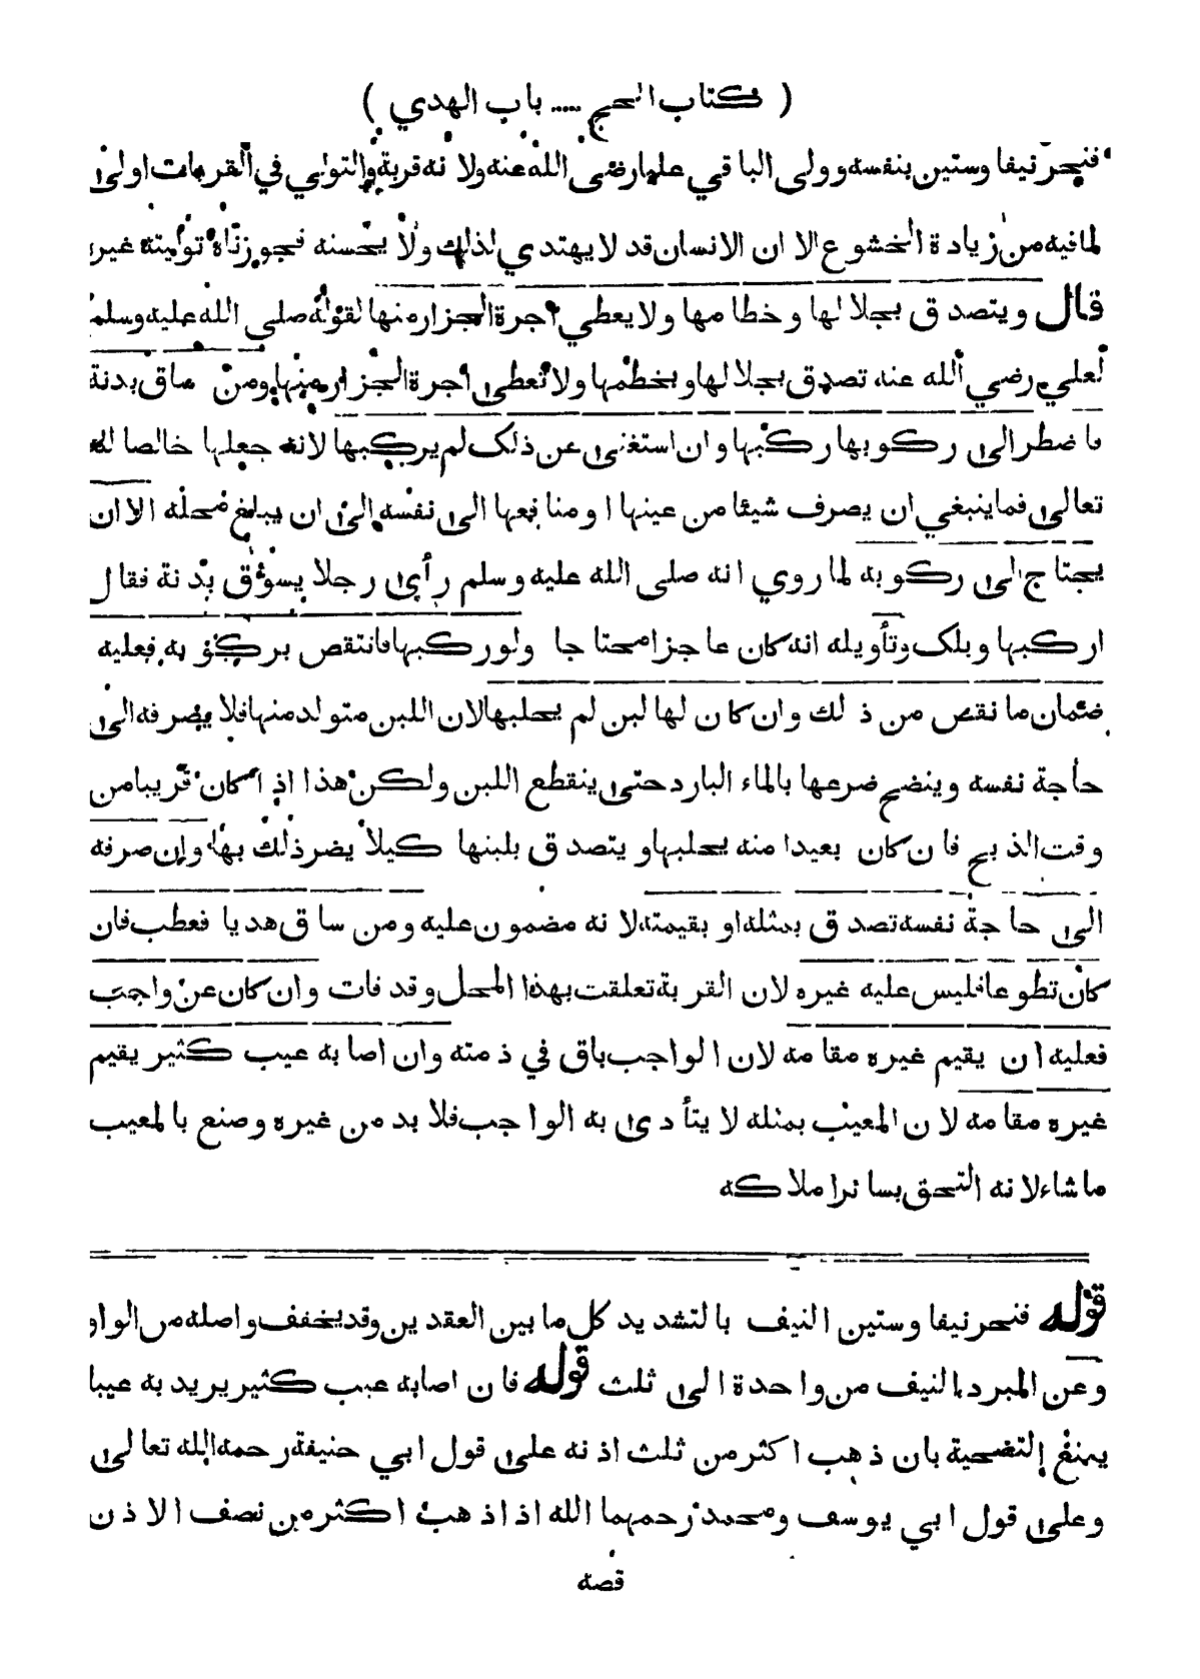 ( كتاب الحج ..... باب الهدي )
فنحر نيفا وستين بنفسه وولى الباقي عليا رضى الله عنه ولا نه قربة والتولي في القربات اولى
لما فيه من زيادة الخشوع الا ان الانسان قد لا يهتدي لذلك ولا يحسنه فجوزناه توليته غيره
قال ويتصدق بجلالها وخطامها ولا يعطي اجرة الجزار منها لقوله صلى الله عليه وسلم
لعلي رضي الله عنه تصدق بجلالها وبخطمها ولا تعطى اجرة الجزار منها ومن ساق بدنة
فاضطر الى ركوبها ركبها وان استغنى عن ذلك لم يركبها لانه جعلها خالصا لله
تعالى فما ينبغي ان يصرف شيئا من عينها او منافعها الى نفسه الى ان يبلغ محله الا ان
يحتاج الى ركوبه لما روي انه صلى الله عليه وسلم رأى رجلا يسوق بدنة فقال
اركبها ويلك وتأويله انه كان عاجزا محتاجا ولو ركبها فانتقص بركوبه فعليه
ضمان ما نقص من ذلك وان كان لها لبن لم يحلبها لان اللبن متولد منها فلا يصرفه الى
حاجة نفسه وينضح ضرعها بالماء البارد حتى ينقطع اللبن ولكن هذا اذا كان قريبا من
وقت الذبح فان كان بعيدا منه يحلبها ويتصدق بلبنها كيلا يضر ذلك بها وان صرفه
الى حاجة نفسه تصدق بمثله او بقيمته لانه مضمون عليه ومن ساق هديا فعطب فان
كان تطوعا فليس عليه غيره لان القربة تعلقت بهذا المحل وقد فات وان كان عن واجب
فعليه ان يقيم غيره مقامه لان الواجب باق في ذمته وان اصابه عيب كثير يقيم
غيره مقامه لان المعيب بمثله لا يتأدى به الواجب فلا بد من غيره وصنع بالمعيب
ماشاء لانه التحق بسائر املاكه
قوله فنحر نيفا وستين النيف بالتشديد كل ما بين العقدين وقد يخفف واصله من الواو
وعن المبرد النيف من واحدة الى ثلث قوله فان اصابه عيب كثير يريد به عيبا
يمنع التضحية بان ذهب اكثر من ثلث اذنه على قول ابي حنيفة رحمه الله تعالى
وعلى قول ابي يوسف ومحمد رحمهما الله اذا ذهب اكثر من نصف الاذن
قصة